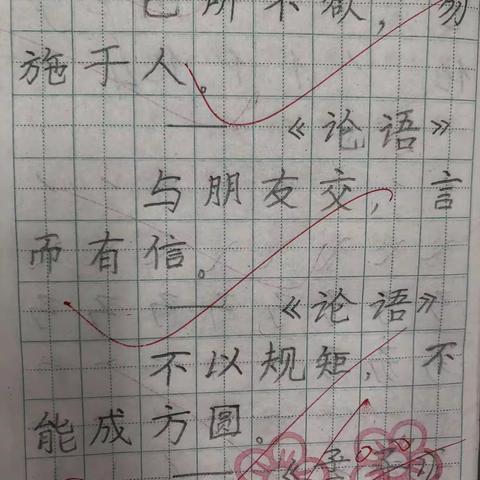 己所不欲，勿
施于人。
——《论语》
与朋友交，言
而有信。
——《论语》
不以规矩，不
能成方圆。
——《孟子》